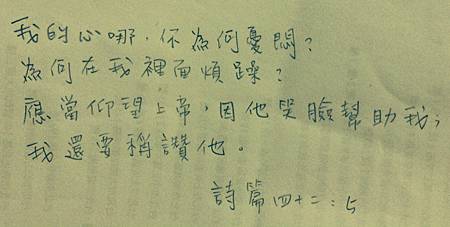 我的心哪，你為何憂悶？
為何在我裡面煩躁？
應當仰望上帝，因他笑臉幫助我；
我還要稱讚他。
詩篇四十二：5